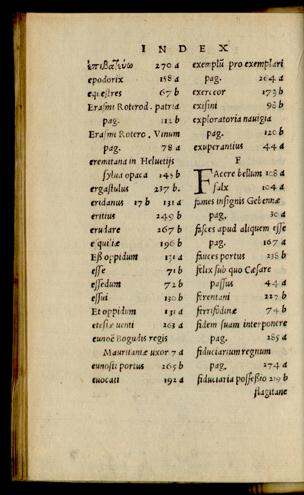 INDEX
ἐπιβατεύω 270 a
epodorix 158 a
equestres 67 b
Erasmi Roterod. patria
pag. 112 b
Erasmi Rotero. Vinum
pag. 78 a
eremitana in Heluetijs
sylua opaca 145 b
ergastulus 237 b.
eridanus 17 b 131 a
eritius 249 b
erudare 267 b
esquiliæ 196 b
Eß oppidum 131 a
esse 71 b
essedum 72 b
essui 130 b
Et oppidum 131 a
etesiæ uenti 263 a
eunoë Bogudis regis
Mauritaniæ uxor 7 a
eunosti portus 265 b
euocati 192 a
exemplū pro exemplari
pag. 264 a
exerceor 173 b
exisini 98 b
exploratoria nauigia
pag. 120 b
exuperantius 44 a
F
FAcere bellum 108 a
falx 104 a
fames insignis Gehennæ
pag. 30 a
fasces apud aliquem esse
pag. 167 a
fauces portus 238 b
felix sub quo Cæsare
passus 44 a
ferentani 227 b
ferrifodinæ 74 b
fidem suam interponere
pag. 285 a
fiduciarium regnum
pag. 274 a
fiduciaria possessio 219 b
flagitane